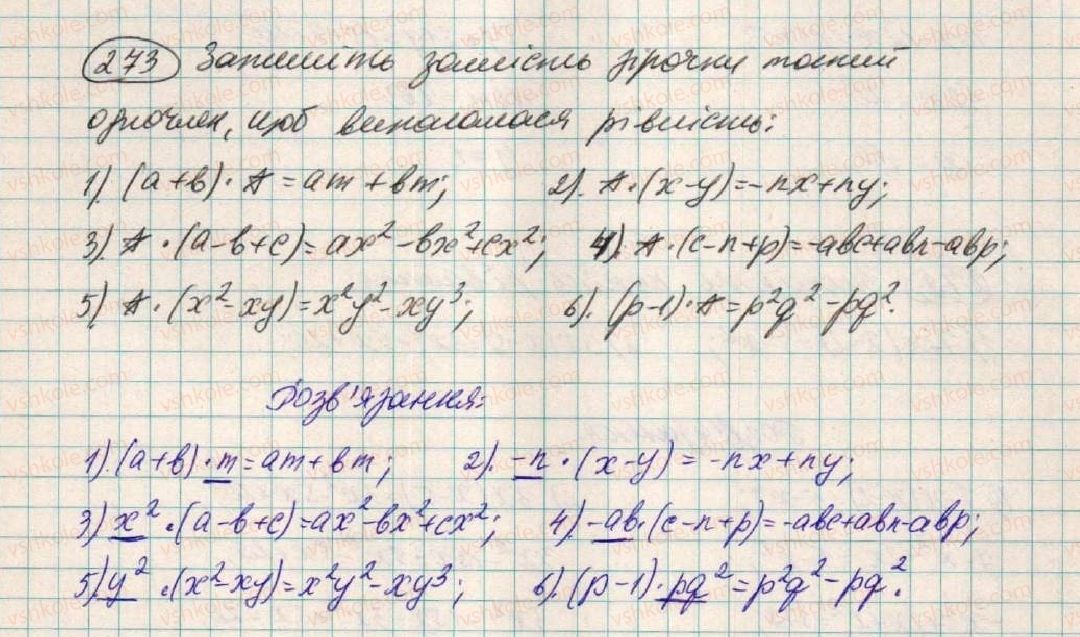 273 Запишіть замість зірочки такий
одночлен, щоб виконувалася рівність:
1). (a+b)·* = am+bm; 2). *·(x-y)=-nx+ny;
3). *·(a-b+c)=ax²-bx²+cx²; 4). *·(c-n+p)=-abc+abn-abp;
5) *·(x²-xy)=x²y²-xy³; 6). (p-1)·*=p²q²-pq².
Розв'язання:
1). (a+b)·m=am+bm; 2). -n·(x-y)=-nx+ny;
3) x²·(a-b+c)=ax²-bx²+cx²; 4). -ab·(c-n+p)=-abc+abn-abp;
5). y²·(x²-xy)=x²y²-xy³; 6). (p-1)·pq²=p²q²-pq².